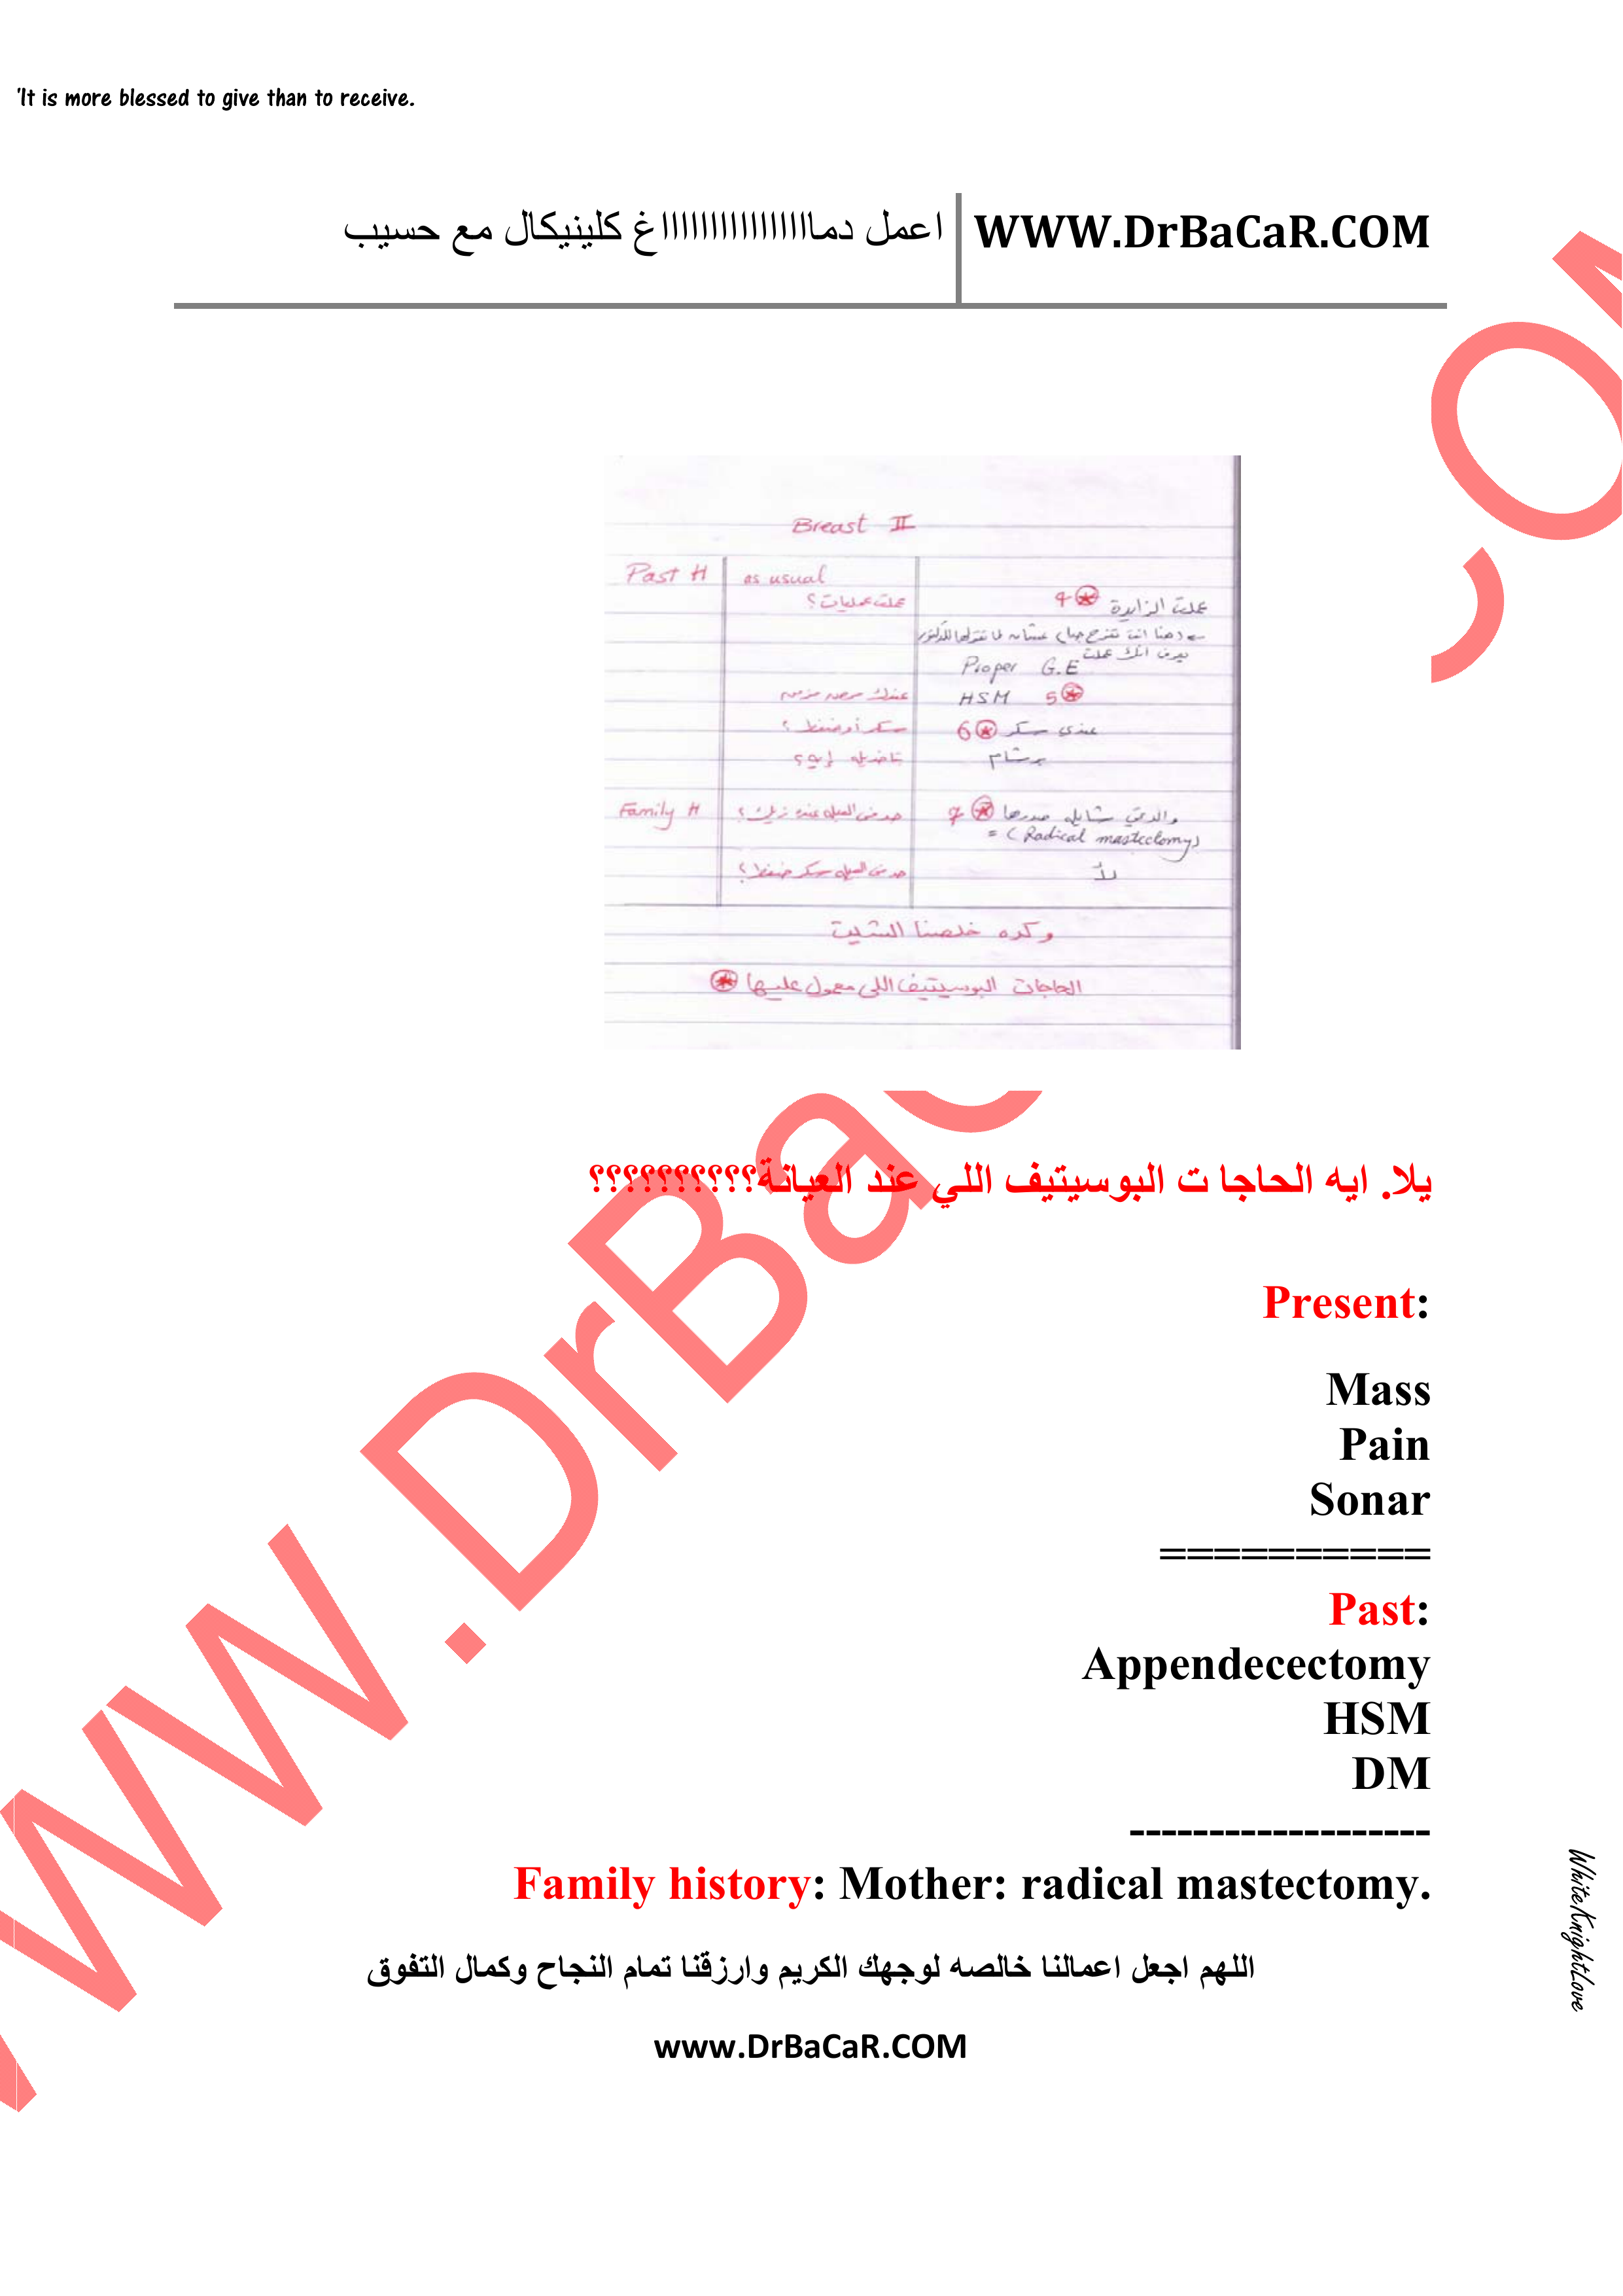 'It is more blessed to give than to receive.
اعمل دماااااااااااااااغ كلينيكال مع حسيب
WWW.DrBaCaR.COM
Breast II
Past H
as usual
عملت عمليات؟
عملت الزايدة 4
Proper G.E
عندك مرض مزمن
HSM 5
سكر أو ضغط؟
عندي سكر 6
بتاخديله إيه؟
برشام
Family H
حد من العيله عنده زيك؟
والدتي شايله صدرها 7
= (Radical mastectomy)
حد من العيله سكر ضغط؟
لأ
وكده خلصنا الشيت
الحاجات البوسيتيف اللي معمول عليها
يلا. ايه الحاجا ت البوسيتيف اللي عند العيانة؟؟؟؟؟؟؟؟؟؟
Present:
Mass
Pain
Sonar
==========
Past:
Appendecectomy
HSM
DM
-------------------
Family history: Mother: radical mastectomy.
اللهم اجعل اعمالنا خالصه لوجهك الكريم وارزقنا تمام النجاح وكمال التفوق
www.DrBaCaR.COM
WhiteKnightLove
WWW.DrBaCaR.COM